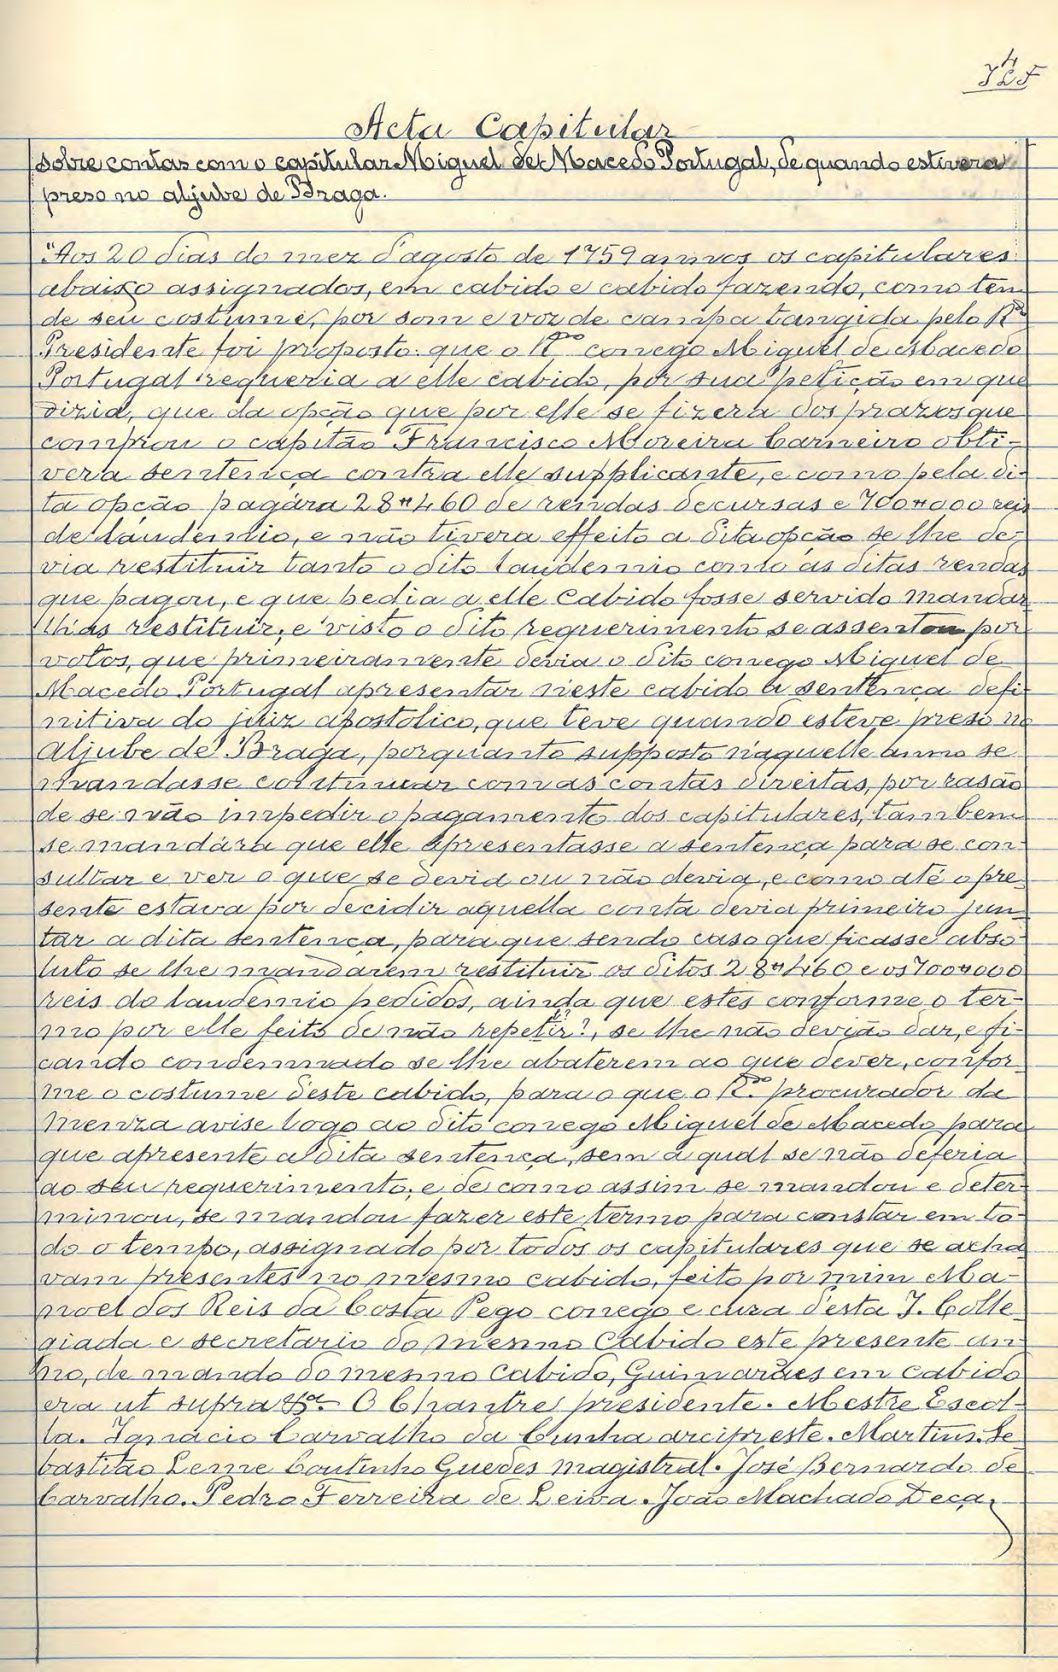 4
JLF
Acta Capitular
sobre contas com o capitular Miguel de Macedo Portugal, de quando estivera
preso no aljube de Braga.
"Aos 20 dias do mez d'agosto de 1759 annos os capitulares
abaixo assignados, em cabido e cabido fazendo, como tem
de seu costume, por som e voz de campa tangida pelo Rdo
Presidente foi proposto: que o Rdo conego Miguel de Macedo
Portugal requeria a elle cabido, por sua petição em que
dizia, que da opção que por elle se fizera dos prazos que
comprou o capitão Francisco Moreira Carneiro obti-
vera sentença contra elle supplicante, e como pela di-
ta opção pagára 28#460 de rendas decursas e 700#000 reis
de laudemio, e não tivera effeito a dita opção se lhe de-
via restituir tanto o dito laudemio como as ditas rendas
que pagou, e que pedia a elle Cabido fosse servido mandar
lh'as restituir; e visto o dito requerimento se assentou por
votos, que primeiramente devia o dito conego Miguel de
Macedo Portugal apresentar n'este cabido a sentença defi-
nitiva do juiz apostolico, que teve quando esteve preso no
Aljube de Braga, porquanto supposto n'aquelle anno se
mandasse continuar com as contas direitas, por rasão
de se não impedir o pagamento dos capitulares, tambem
se mandára que elle apresentasse a sentença para se con-
sultar e ver o que se devia ou não devia, e como até o pre-
sente estava por decidir aquella conta devia primeiro jun-
tar a dita sentença, para que sendo caso que ficasse abso-
luto se lhe mandarem restituir os ditos 28#460 e os 700#000
reis do laudemio pedidos, ainda que estes conforme o ter-
mo por elle feito de não repetir?, se lhe não devião dar, e fi-
cando condemnado se lhe abaterem ao que dever, confor-
me o costume d'este cabido, para o que o Rdo procurador da
Menza avise logo ao dito conego Miguel de Macedo para
que apresente a dita sentença, sem a qual se não deferia
ao seu requerimento; e de como assim se mandou e deter-
minou, se mandou fazer este termo para constar em to-
do o tempo, assignado por todos os capitulares que se acha-
vam presentes no mesmo cabido, feito por mim Ma-
noel dos Reis da Costa Pego conego e cura d'esta I. Colle-
giada e secretario do mesmo Cabido este presente an-
no, de mando do mesmo Cabido, Guimarães em Cabido
era ut supra O Chantre presidente. Mestre Escol-
la. Ignacio Carvalho da Cunha arcipreste. Martins. Se-
bastião Leme Coutinho Guedes magistral. José Bernardo de
Carvalho. Pedro Ferreira de Leiva. João Machado Deça